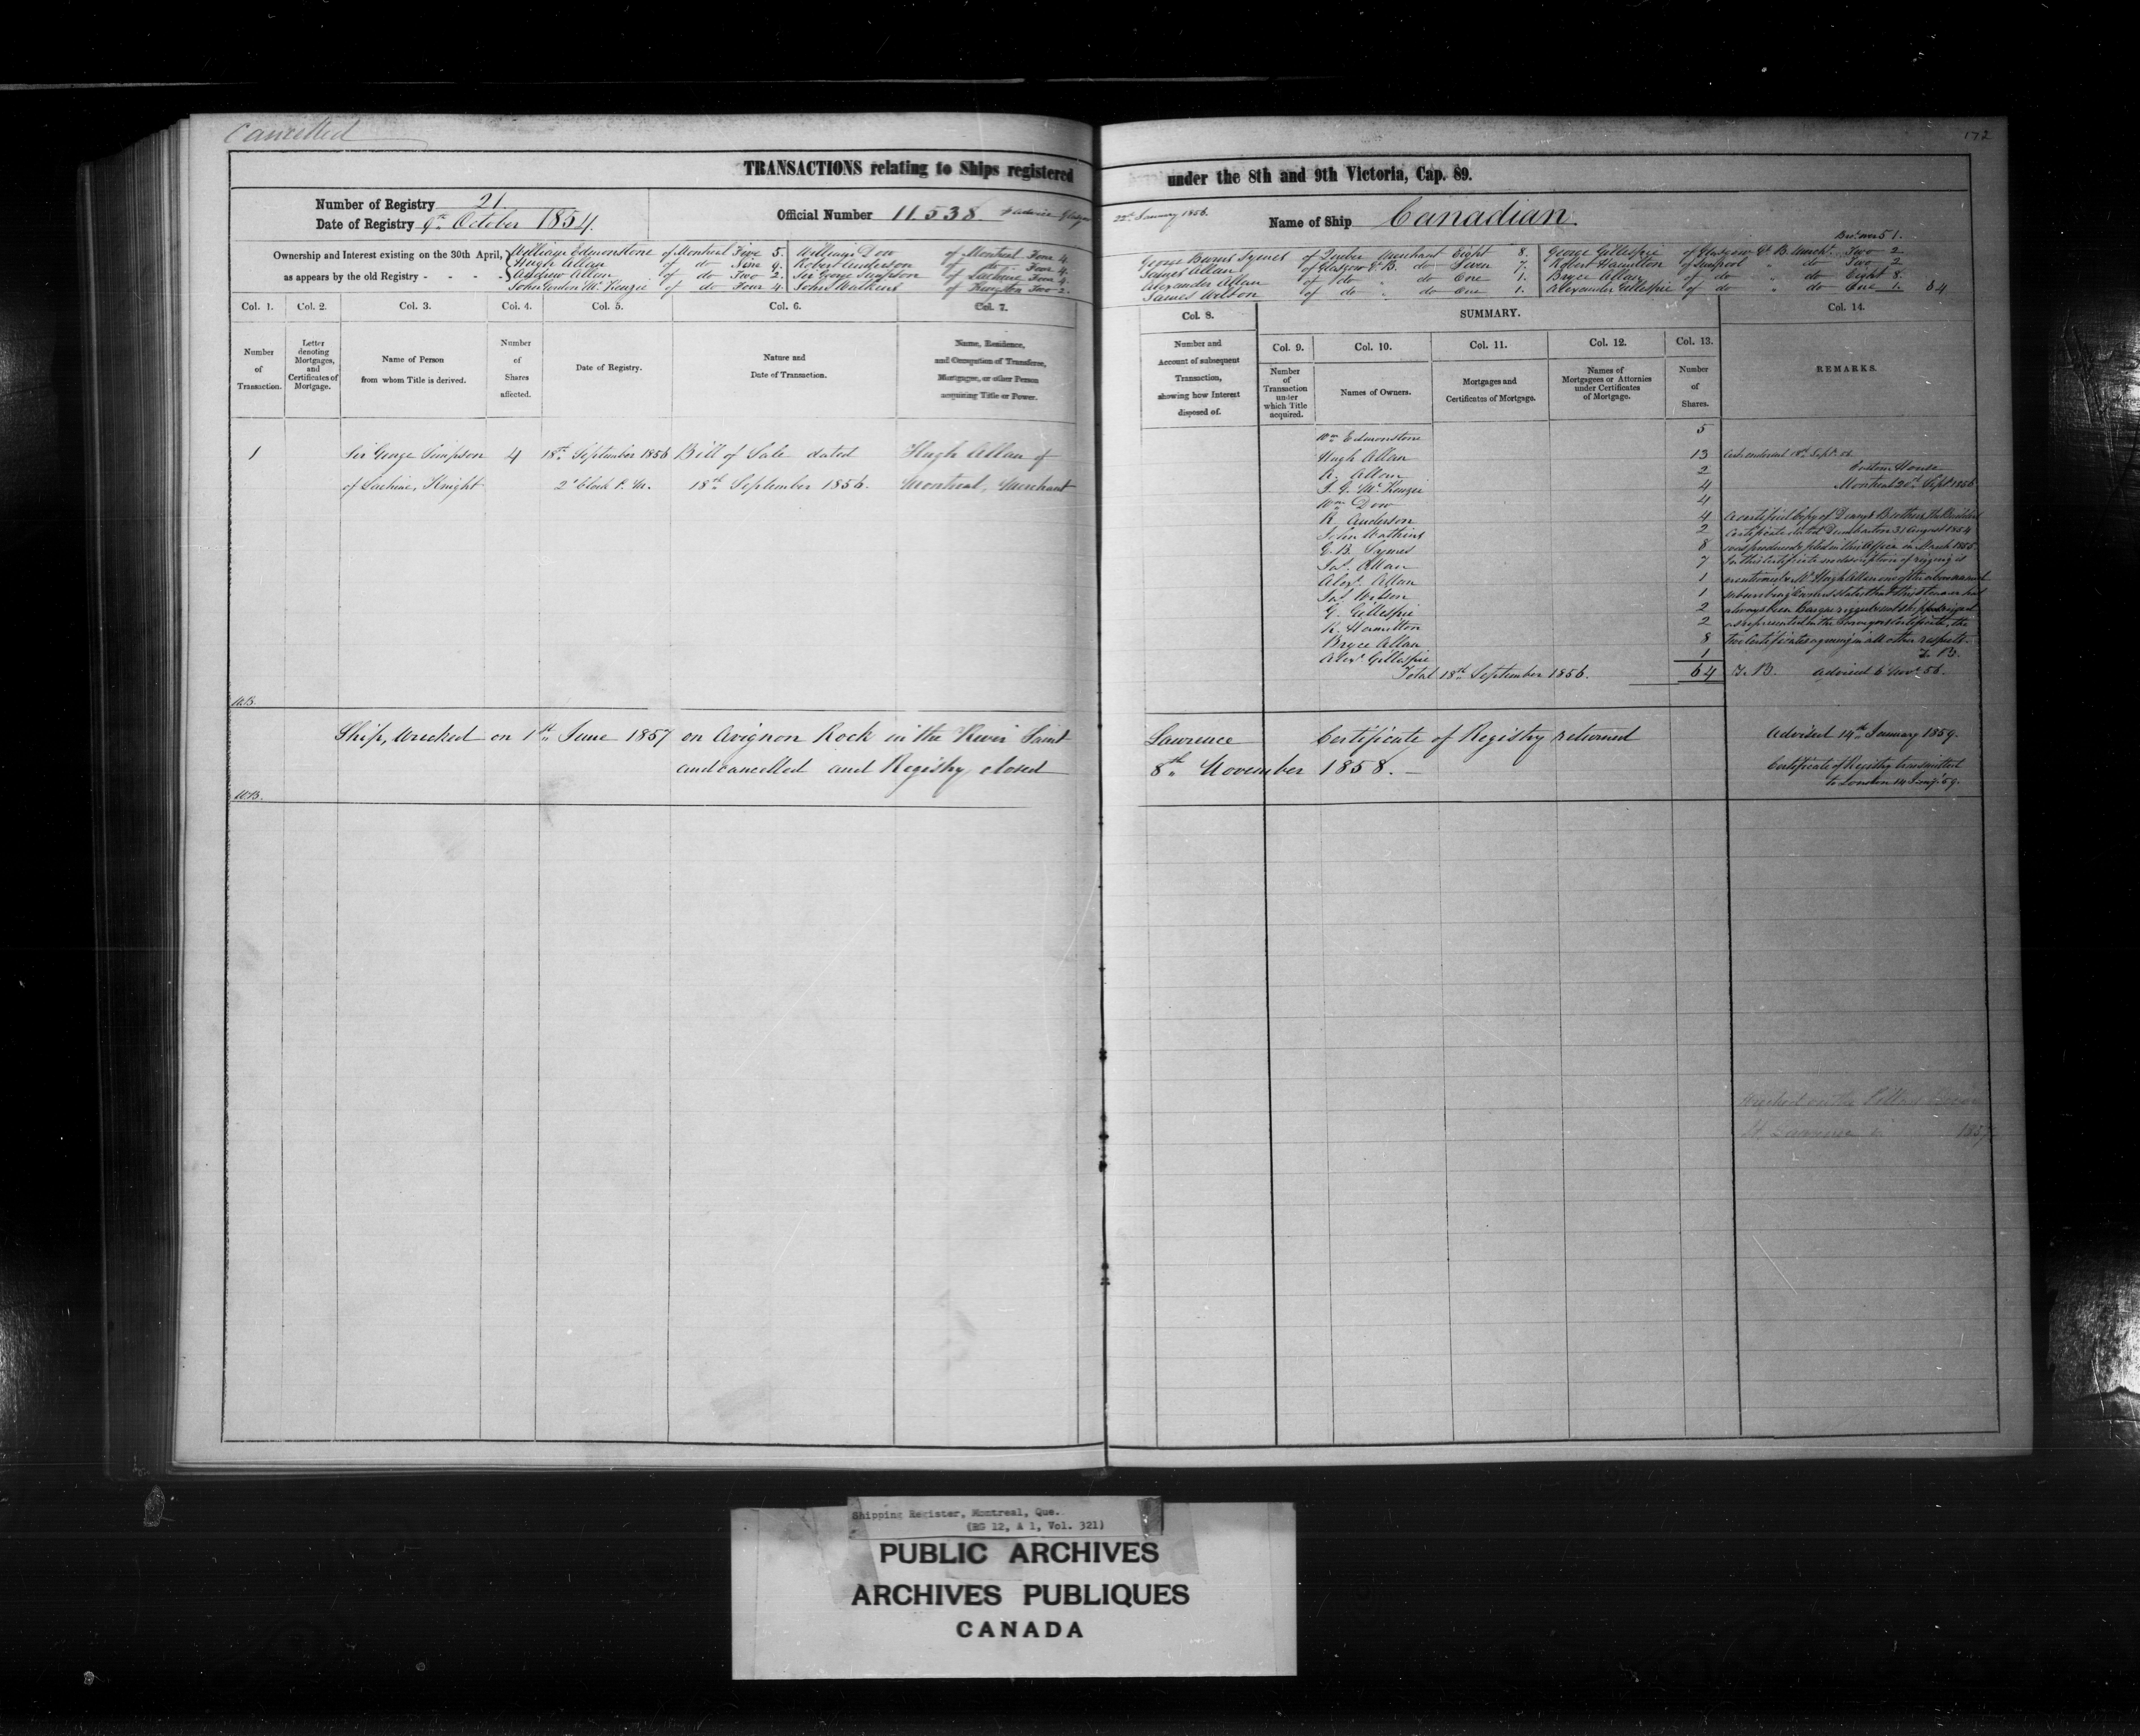 Cancelled
172
TRANSACTIONS relating to Ships registered under the 8th and 9th Victoria, Cap. 89.
Number of Registry 21.
Date of Registry 9th October 1854.
Official Number 11.538. Advise Glasgow 22nd January 1856.
Name of Ship Canadian
Ownership and Interest existing on the 30th April,
as appears by the old Registry - - - -
William Edmonstone of Montreal Five 5.
Hugh Allan of do Nine 9.
Andrew Allan of do Two 2.
John Gordon McKenzie of do Four 4.
William Dow of Montreal Four 4.
Robert Anderson of do Four 4.
Sir George Simpson of Lachine Four 4.
John Watkins of Kingston Two 2.
George Burns Symes of Quebec Merchant Eight 8.
James Allan of Glasgow G.B. do Seven 7.
Alexander Allan of do " do One 1.
James Wilson of do " do One 1.
Brt. over 51.
George Gillespie of Glasgow G.B. Mercht. Two 2
Robert Hamilton of Liverpool " do Two 2
Bryce Allan of do " do Eight 8.
Alexander Gillespie of do " do One 1. 64
Col. 1.
Col. 2.
Col. 3.
Col. 4.
Col. 5.
Col. 6.
Col. 7.
Col. 8.
SUMMARY.
Col. 14.
Col. 9.
Col. 10.
Col. 11.
Col. 12.
Col. 13.
Number
of
Transaction.
Letter
denoting
Mortgages,
and
Certificates of
Mortgage.
Name of Person
from whom Title is derived.
Number
of
Shares
affected.
Date of Registry.
Nature and
Date of Transaction.
Name, Residence,
and Occupation of Transferee,
Mortgagee, or other Person
acquiring Title or Power.
Number and
Account of subsequent
Transaction,
showing how Interest
disposed of.
Number
of
Transaction
under
which Title
acquired.
Names of Owners.
Mortgages and
Certificates of Mortgage.
Names of
Mortgagees or Attornies
under Certificates
of Mortgage.
Number
of
Shares.
REMARKS.
1 Sir George Simpson 4 18th September 1856 Bill of Sale dated Hugh Allan of
of Lachine, Knight 2 o'Clock P.M. 18th September 1856. Montreal, Merchant
Wm Edmonstone 5
Hugh Allan 13
A. Allan 2
J. G. McKenzie 4
Wm Dow 4
R. Anderson 4
John Watkins 2
G. B. Symes 8
Jas. Allan 7
Alexr. Allan 1
Jas. Wilson 1
G. Gillespie 2
R. Hamilton 2
Bryce Allan 8
Alexr Gillespie 1
Total 18th September 1856. 64
18th Sept. 56.
Custom House
Montreal 20th Sept 1856
A certified Copy of Denny & Brothers the Builders
Certificate dated Dumbarton 31 August 1854
was produced & filed in this Office in March 1855.
In this Certificate no description of rigging is
mentioned Mr Hugh Allan one of the above named
states that this Steamer had
always been Barque rigged and not ship rigged
as represented in the Surveyors Certificate, the
two Certificates agreeing in all other respects.
T. B.
T. B. Advised 6 Novr 56.
W.B.
Ship, Wrecked on 1st June 1857 on Avignon Rock in the River Saint Lawrence Certificate of Registry returned
and cancelled and Registry closed 8th November 1858. –
Advised 14th January 1859.
Certificate of Registry transmitted
to London 14 Jany. 59.
W.B.
Wrecked on the
St. Lawrence in 1857
Shipping Register, Montreal, Que.
(RG 12, A 1, Vol. 321)
PUBLIC ARCHIVES
ARCHIVES PUBLIQUES
CANADA